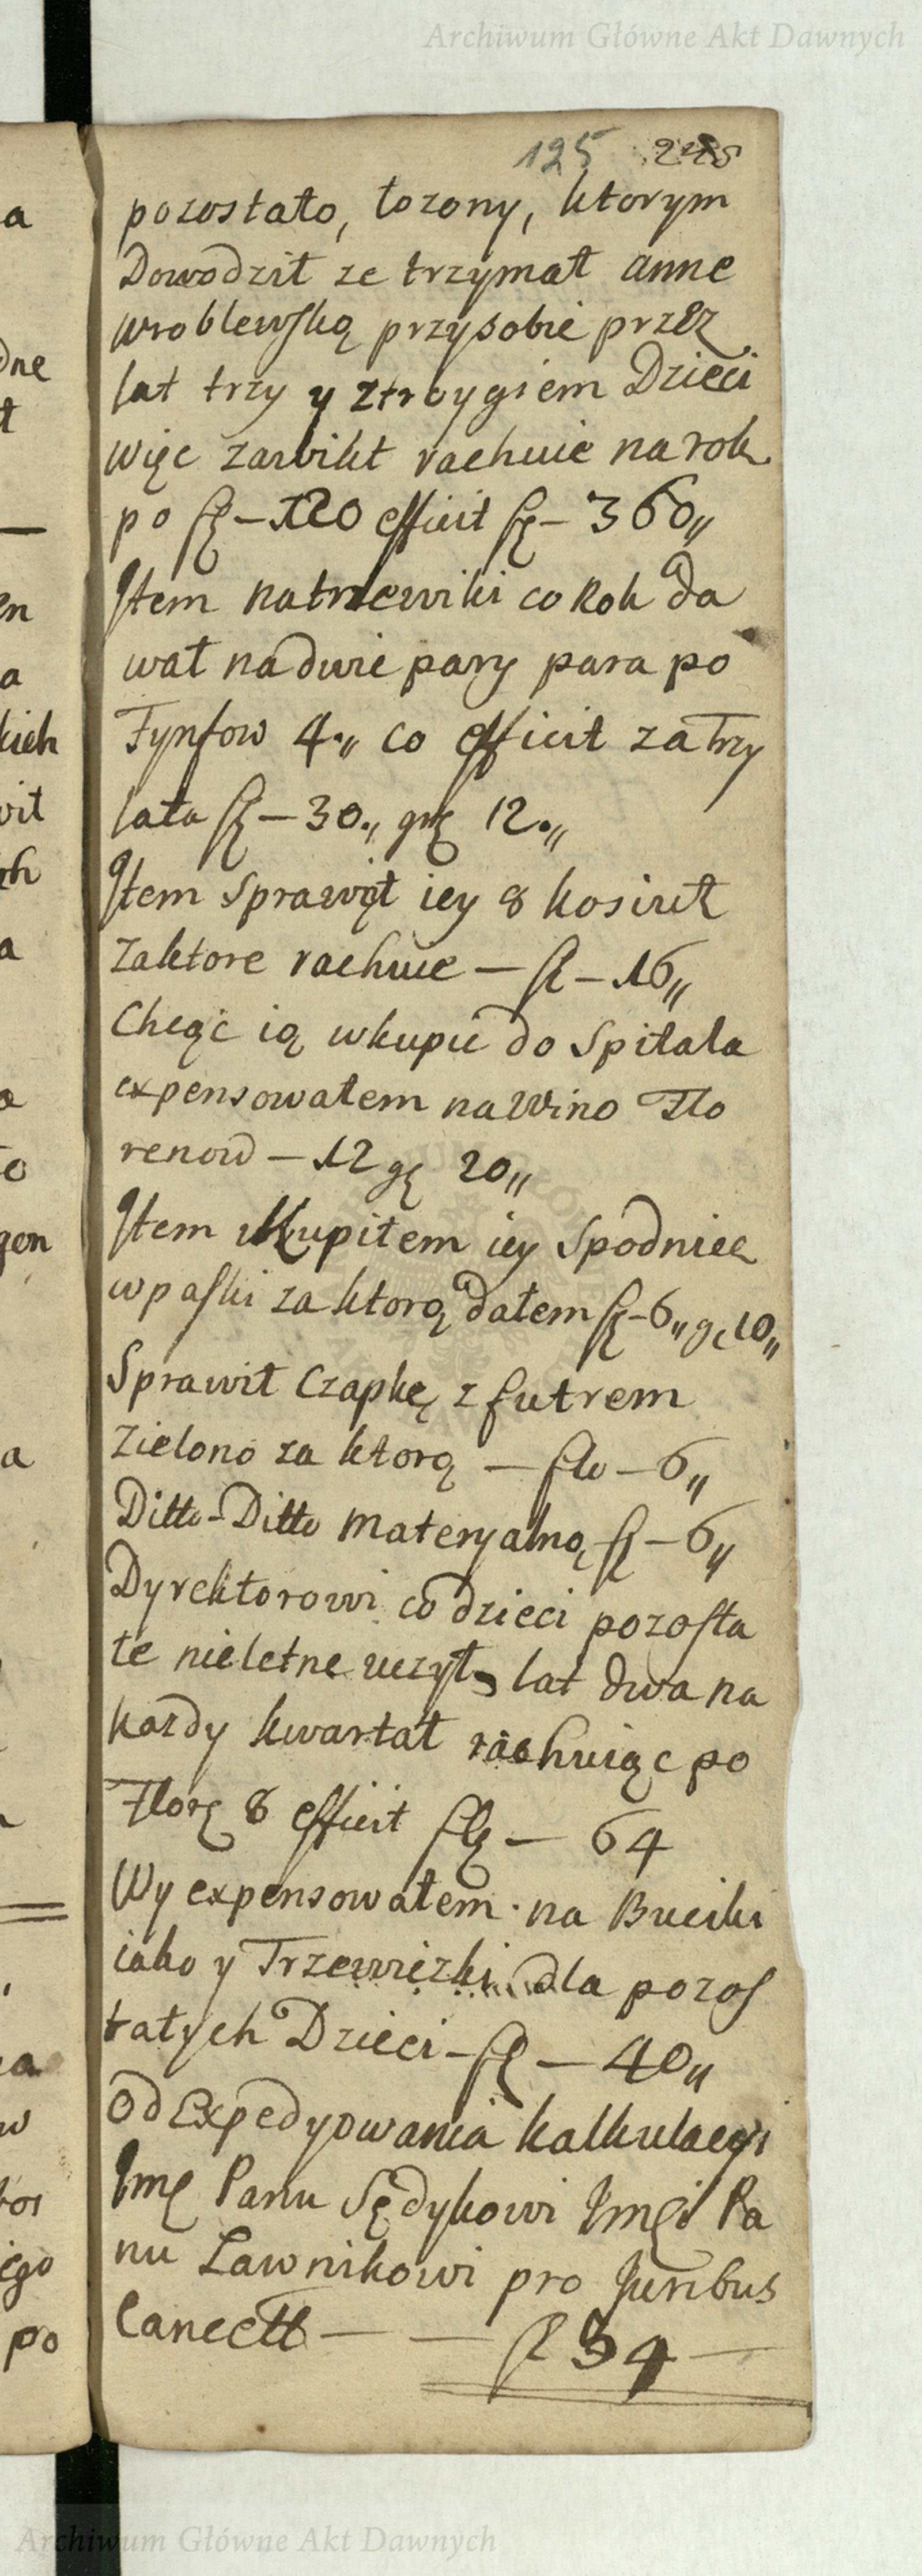 Archiwum Główne Akt Dawnych
125 245
pozostało, łozony, ktorym
Dowodził ze trzymał anne
wroblewską przysobie przez
lat trzy y
Dzieci
więc zawikt rachuie na rok
po fl – 120 efficit fl – 360„
Item natrzewiki co Rok da
wał nadwie pary para po
Tynfow 4.„ co efficit za Trzy
lata fl – 30.„ gr 12.„
Item Sprawił iey 8 kosiult
zaktore rachuie — fl – 16„
Chcąc ią wkupic do Spitala
expensowałem na Wino Flo
renow – 12 gr 20„
Item kupiłem iey Spodnice
w paski za ktorą dałem fl – 6„ gr 10„
Sprawił Czapkę z futrem
zielono za ktorą — flo – 6„
Ditto – Ditto materyalną fl – 6„
Dyrektorowi co dzieci pozosta
łe nieletne uczył lat dwa na
kazdy kwartał rachuiąc po
Flore 8 efficit fl — 64
Wy expensowałem na Buciki
iako y Trzewiczki dla pozos
tałych Dzieci – fl — 40„
Od Expedyowania kalkulacyi
Imę Panu Sędykowi Imci Pa
nu Ławnikowi pro Juribus
Cancell — — fl 34 —
a
dne
ł
en
a
kich
wił
ch
a
a
to
gen
a
ia
w
tos
iego
po
Archiwum Główne Akt Dawnych